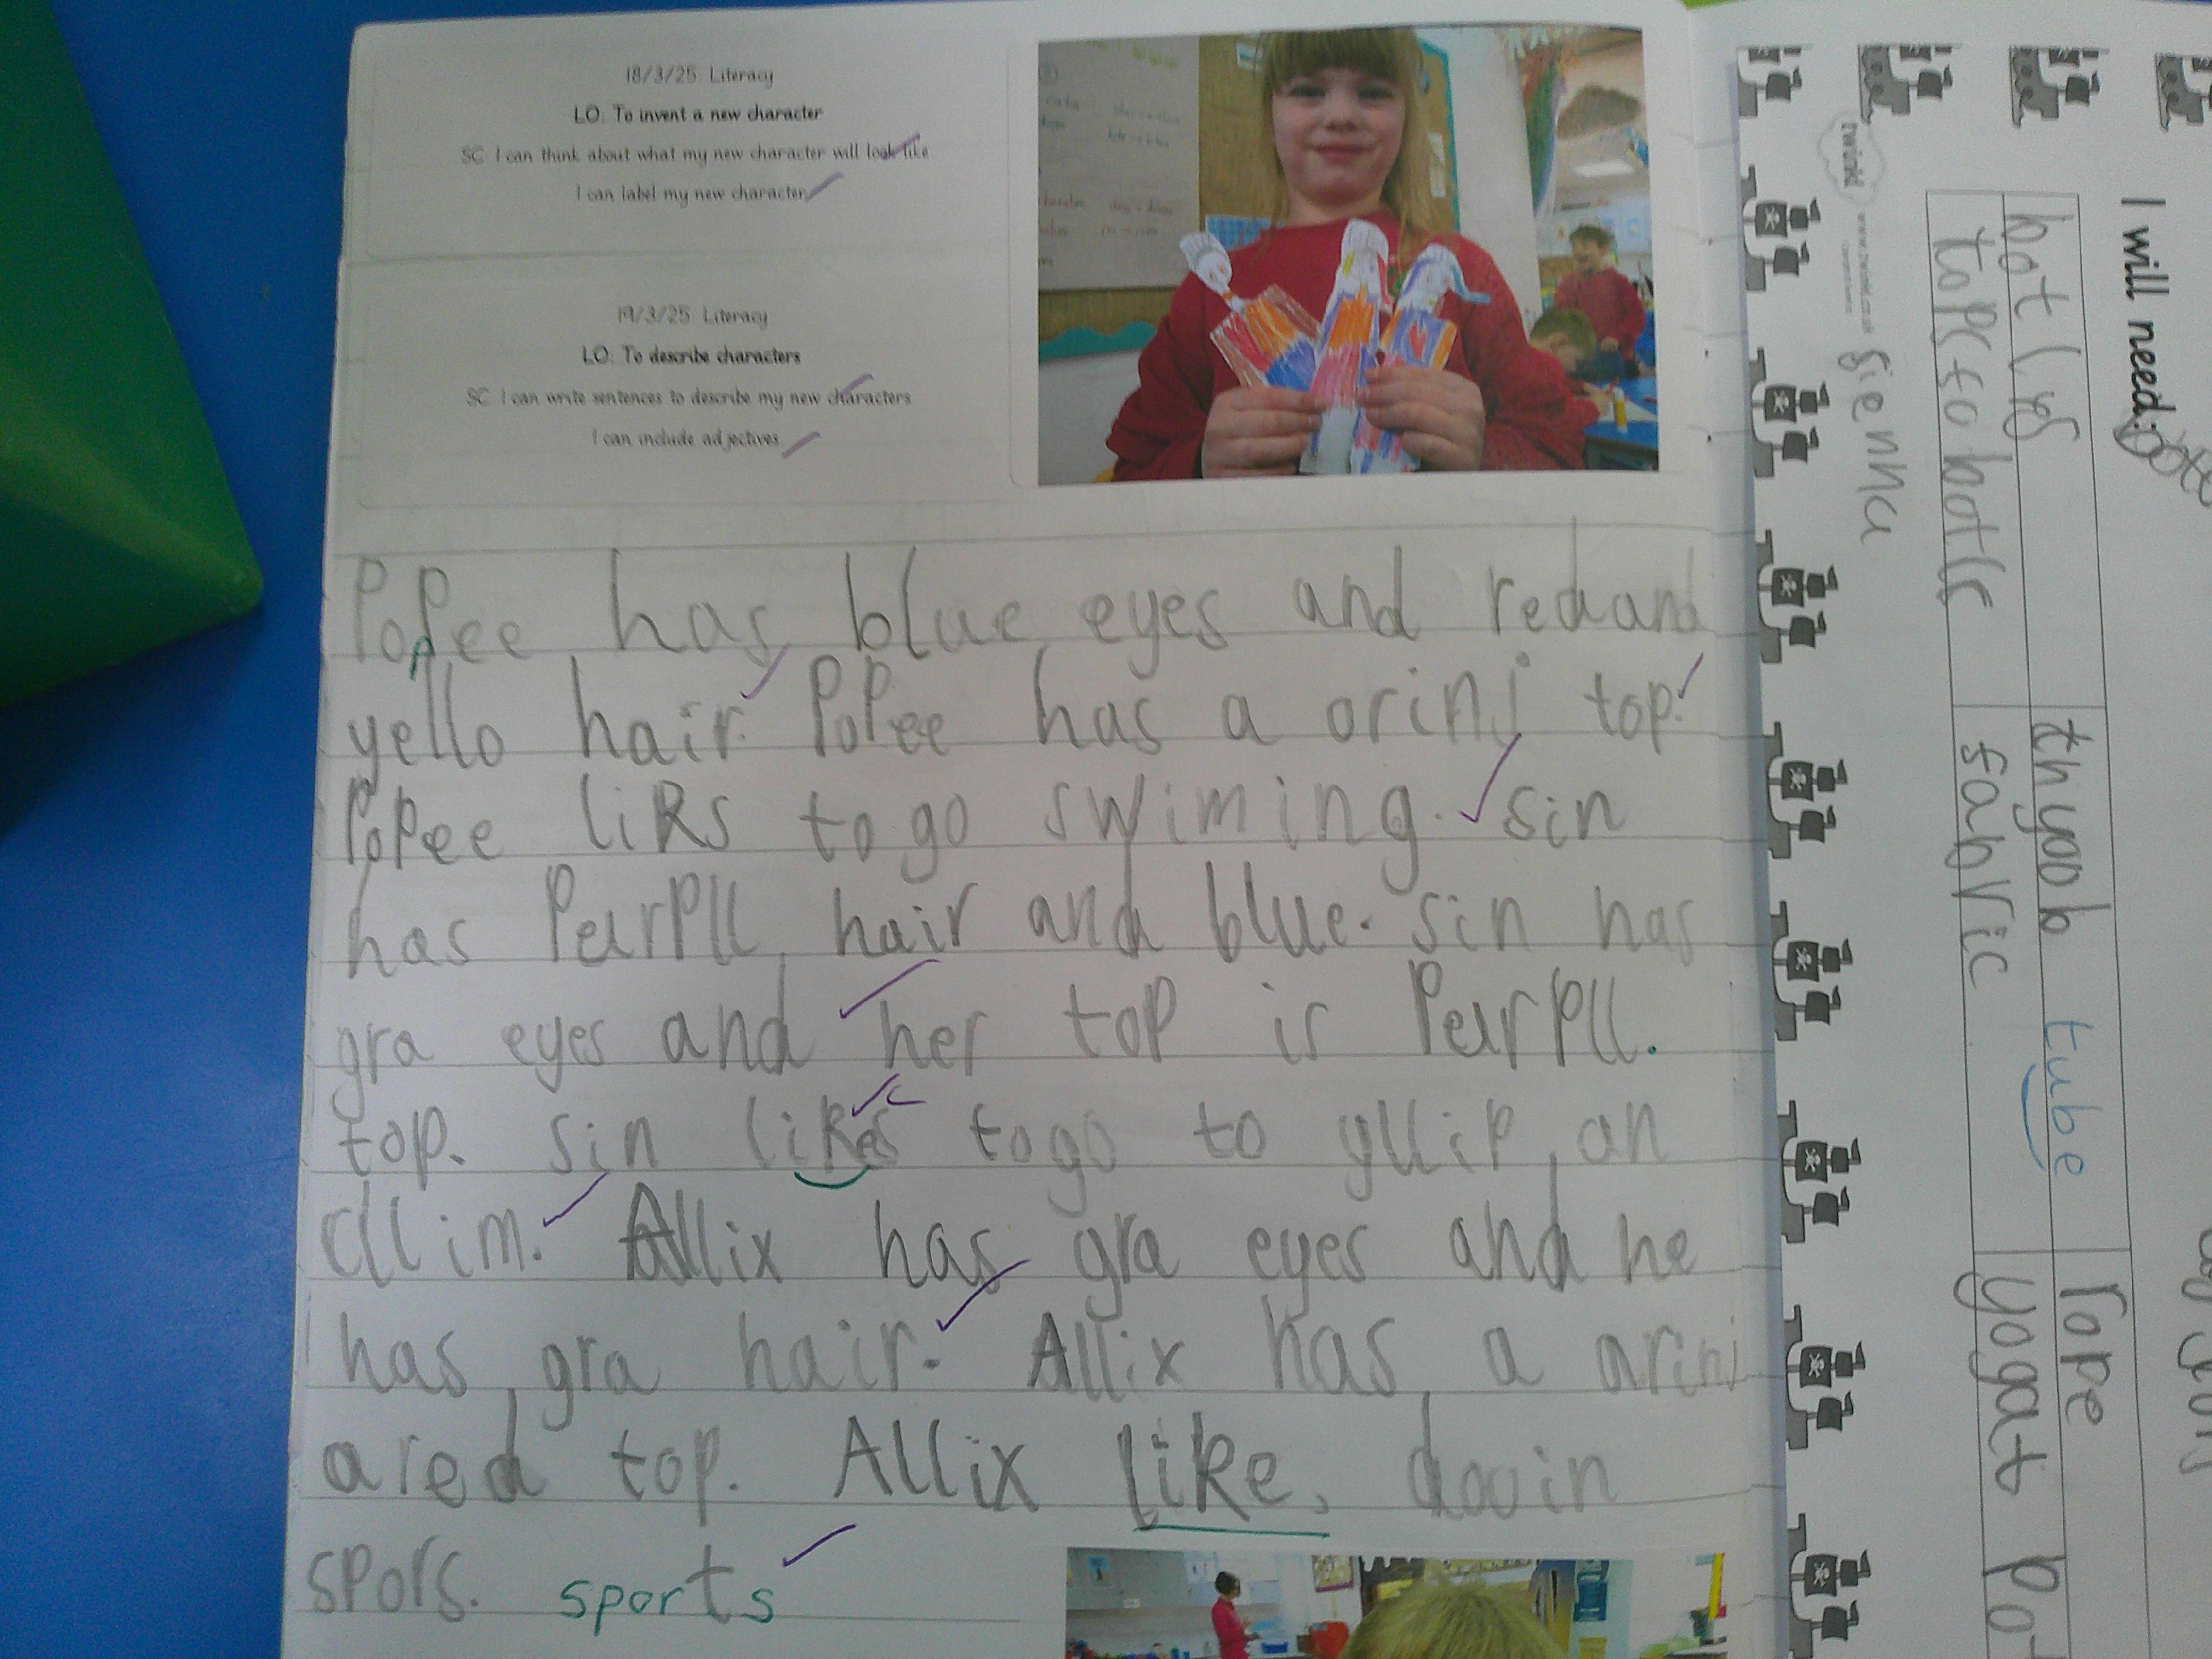 18/3/25 Literacy
LO: To invent a new character
SC: I can think about what my new character will look like
I can label my new character
19/3/25 Literacy
LO: To describe characters
SC: I can write sentences to describe my new characters
I can include adjectives
Popee has blue eyes and redand
yello hair. PoPee has a orinj top.
PoPee liks to go swiming. sin
has PeurPll hair and blue. sin has
gra eyes and her top is PeurPll.
top. sin likes togo to yllip an
cllim. Allix has gra eyes and he
has gra hair. Allix has a arinj
ared top. Allix like dooin
spors. sports
I will need:
thyoob tube
rope
fabric
yogat
twinkl